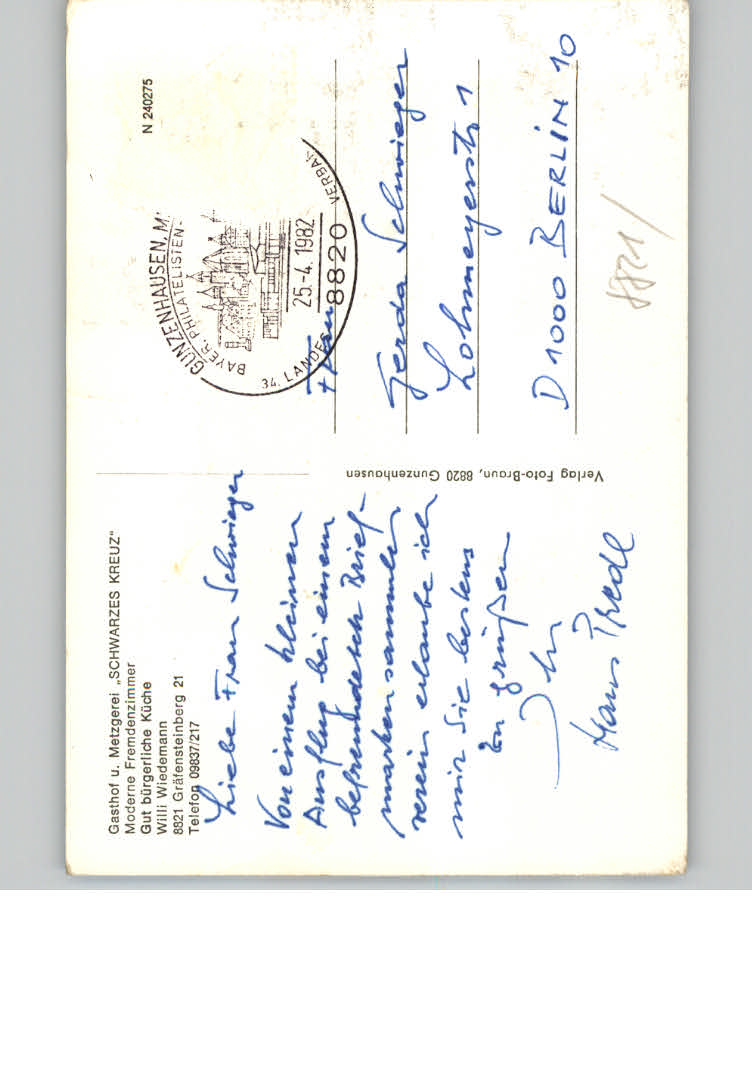 Gasthof u. Metzgerei „SCHWARZES KREUZ"
Moderne Fremdenzimmer
Gut bürgerliche Küche
Willi Wiedemann
8821 Gräfensteinberg 21
Telefon 09837/217
Liebe Frau Schwieger
Von einem kleinen
Ausflug bei einem
befreundeten Brief-
markensammler
verein erlaube ich
mir Sie bestens
zu grüßen
Ihr
Hans
Verlag Foto-Braun, 8820 Gunzenhausen
N 240275
GUNZENHAUSEN, M
BAYER. PHILATELISTEN-
25.-4. 1982
8820
34. LANDES VERBAN
Frau
Gerda Schwieger
Lohmeyerstr 1
D 1000 BERLIN 10
8821/